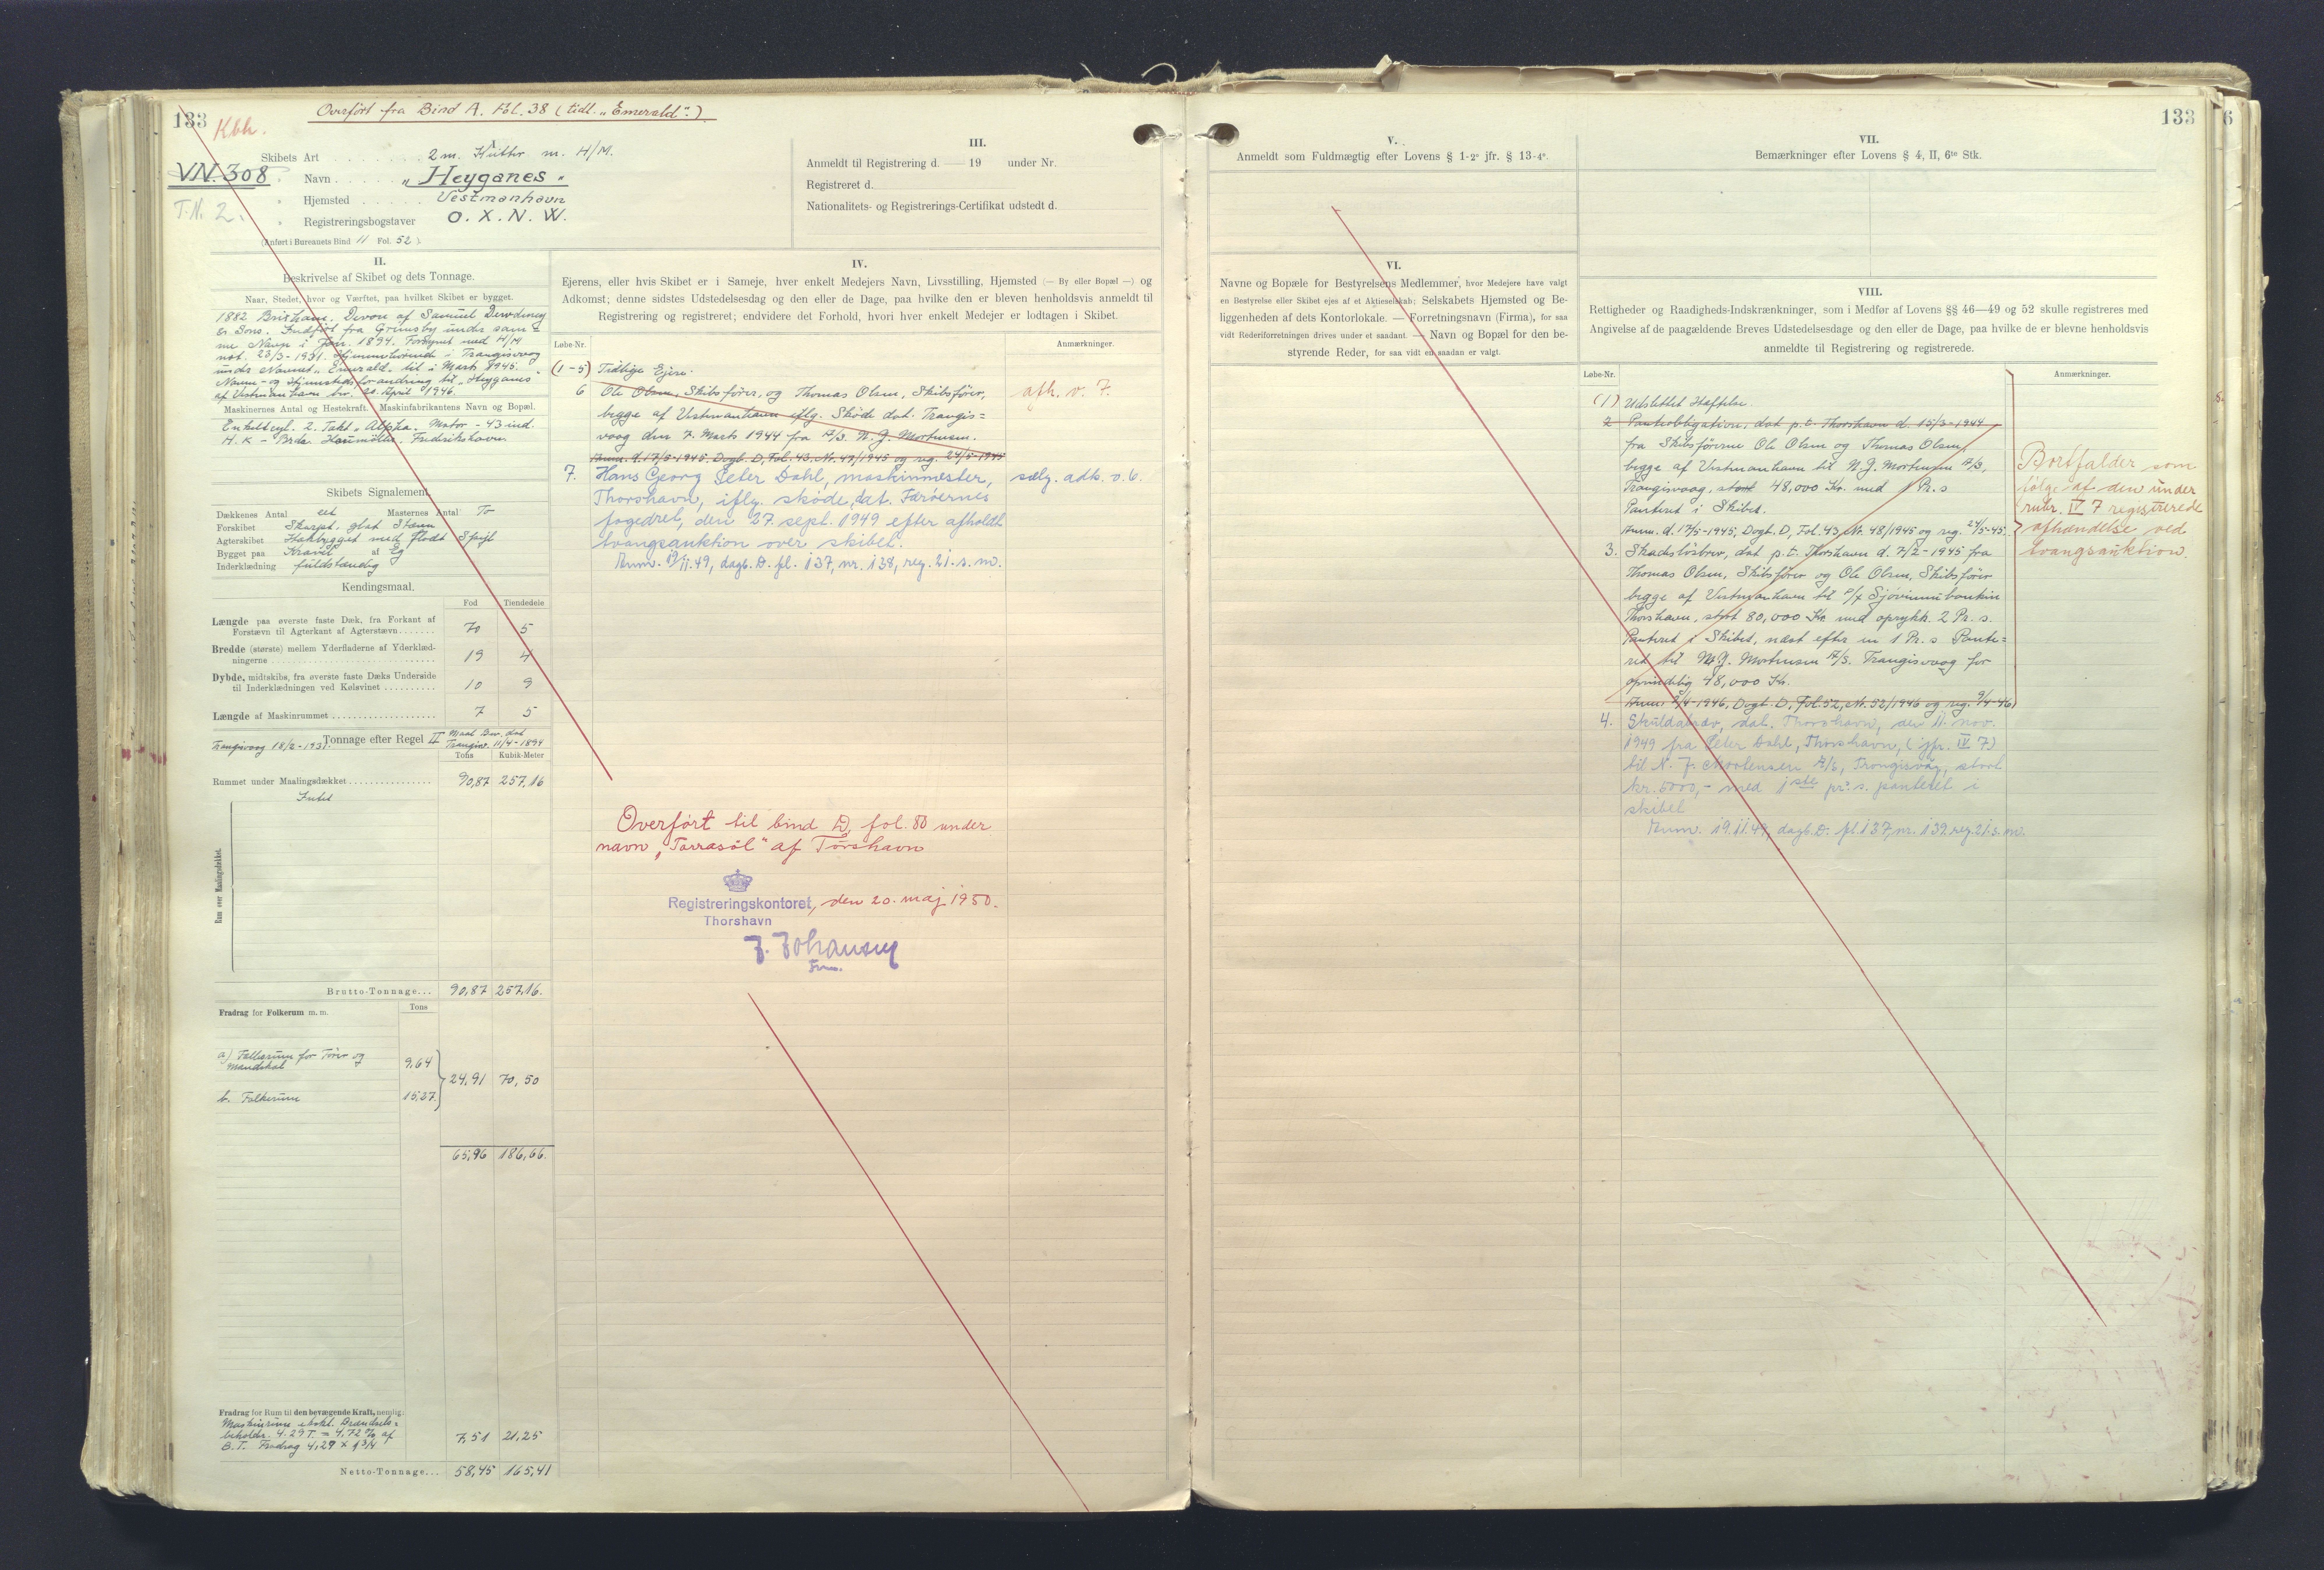 133
Kbh.
Overført fra Bind A. Fol. 38 (tidl. „Emerald“.)
VN. 308
T.N. 2.
Skibets Art 2 m. Kutter m. H/M.
" Navn „Heyganes“
" Hjemsted Vestmanhavn
" Registreringsbogstaver O. X. N. W.
(Anført i Bureauets Bind 11 Fol. 52)
II.
Beskrivelse af Skibet og dets Tonnage.
Naar, Stedet, hvor og Værftet, paa hvilket Skibet er bygget.
1882 Brixham. Devon af Samuel Dewdney
& Sons. Indført fra Grimsby under sam-
me Navn i Jan. 1894. Forsynet med H/M
not. 23/3-1931. Hjemmehørende i Trangisvaag
under Navnet „Emerald“ til i Marts 1945.
Navne- og Hjemstedsforandring til „Heyganes“
af Vestmanhavn bev. 20 April 1946.
Maskinernes Antal og Hestekraft. Maskinfabrikantens Navn og Bopæl.
Enkeltcyl. 2. Takt „Alpha“ Motor - 43 ind.
H.K - Brdr. Houmöller. Fredrikshavn
Skibets Signalement.
Dækkenes Antal eet Masternes Antal To
Forskibet Skarpt, glat Stævn
Agterskibet Hækbygget med fladt Spejl
Bygget paa Kravel af Eg
Inderklædning fuldstændig
Kendingsmaal.
Fod Tiendedele
Længde paa øverste faste Dæk, fra Forkant af
Forstævn til Agterkant af Agterstævn 70 5
Bredde (største) mellem Yderfladerne af Yderklæd-
ningerne 19 4
Dybde, midtskibs, fra øverste faste Dæks Underside
til Inderklædningen ved Kølsvinet 10 9
Længde af Maskinrummet 7 5
Tonnage efter Regel II Maal Bev. dat
Trangisvaag 18/2-1931. Trangisv. 11/4-1894
Tons Kubik-Meter
Rummet under Maalingsdækket 90,87 257,16
Intet
Rum over Maalingsdækket.
Brutto-Tonnage... 90,87 257,16.
Fradrag for Folkerum m. m. Tons
a) Folkerum for Fører og
Mandskab 9,64
24,91 70,50
b. Folkerum 15,27
65,96 186,66.
Fradrag for Rum til den bevægende Kraft, nemlig:
Maskinrum ekskl. Brændsels=
beholdr. 4.29 T. = 4,72 % af
B.T. Fradrag 4,29 x 1 3/4 7,51 21,25
Netto-Tonnage... 58,45 165,41
III.
Anmeldt til Registrering d. — 19 under Nr.
Registreret d.
Nationalitets- og Registrerings-Certifikat udstedt d.
IV.
Ejerens, eller hvis Skibet er i Sameje, hver enkelt Medejers Navn, Livsstilling, Hjemsted (— By eller Bopæl —) og
Adkomst; denne sidstes Udstedelsesdag og den eller de Dage, paa hvilke den er bleven henholdsvis anmeldt til
Registrering og registreret; endvidere det Forhold, hvori hver enkelt Medejer er lodtagen i Skibet.
Løbe-Nr. Anmærkninger.
(1-5) Tidlige Ejere.
6 Ole Olsen, Skibsfører, og Thomas Olsen, Skibsfører, afh. v. 7.
begge af Vestmanhavn iflg. Skøde dat. Trangis=
vaag den 7. Marts 1944 fra A/S. N. J. Mortensen.
Anm. d. 17/5-1945, Dogb. D, Fol. 43, Nr. 47/1945 og reg. 24/5-1945
7. Hans Georg Peter Dahl, maskinmester, sælg. adk. v. 6.
Thorshavn, iflg. skøde, dat. Færøernes
fogedret, den 27. sept. 1949 efter afholdt
tvangsauktion over skibet.
Anm. 19/11.49, dagb. D. fl. 137, nr. 138, reg. 21. s. m.
Overført til bind D, fol. 80 under
navn „Tarrasól“ af Tórshavn
Registreringskontoret, den 20. maj 1950.
Thorshavn
J. Johansen
Fm.
V.
Anmeldt som Fuldmægtig efter Lovens § 1-2° jfr. § 13-4°.
VI.
Navne og Bopæle for Bestyrelsens Medlemmer, hvor Medejere have valgt
en Bestyrelse eller Skibet ejes af et Aktieselskab; Selskabets Hjemsted og Be-
liggenheden af dets Kontorlokale. — Forretningsnavn (Firma), for saa
vidt Rederiforretningen drives under et saadant. — Navn og Bopæl for den be-
styrende Reder, for saa vidt en saadan er valgt.
133
6
VII.
Bemærkninger efter Lovens § 4, II, 6te Stk.
VIII.
Rettigheder og Raadigheds-Indskrænkninger, som i Medfør af Lovens §§ 46—49 og 52 skulle registreres med
Angivelse af de paagældende Breves Udstedelsesdage og den eller de Dage, paa hvilke de er blevne henholdsvis
anmeldte til Registrering og registrerede.
Løbe-Nr. Anmærkninger.
(1) Udslettet Hæftelse.
2 Panteobligation, dat p.t. Thorshavn d. 15/3-1944
fra Skibsførerne Ole Olsen og Thomas Olsen,
begge af Vestmanhavn til N. J. Mortensen A/S,
Trangisvaag, stort 48,000 Kr. med 1 Pr. s
Panteret i Skibet.
Anm. d. 17/5-1945, Dogb. D, Fol. 43, Nr. 48/1945 og reg. 24/5-45.
3. Skadesløsbrev, dat p.t. Thorshavn d. 7/2-1945 fra
Thomas Olsen, Skibsfører og Ole Olsen, Skibsfører
begge af Vestmanhavn til P/f Sjóvinnubankin
Thorshavn, stort 80,000 Kr. med oprykk. 2 Pr. s.
Panteret i Skibet, næst efter en 1 Pr. s Pante=
ret til N. J. Mortensen A/S. Trangisvaag for
oprindelig 48,000 Kr.
Anm. 9/4-1946, Dogb. D, Fol. 52, Nr. 52/1946 og reg. 9/4-46)
Bortfalder som
følge af den under
rubr. IV 7 registrerede
afhændelse ved
tvangsauktion.
4. Skuldabræv, dat. Thorshavn, den 11. nov.
1949 fra Peter Dahl, Thorshavn, (jfr. IV 7)
til N. J. Mortensen A/S, Trongisvág, stort
kr. 5000,- med 1ste pr. s. panteret i
skibet
Anm. 19.11.49, dagb. D. fl. 137, nr. 139 reg. 21. s. m.